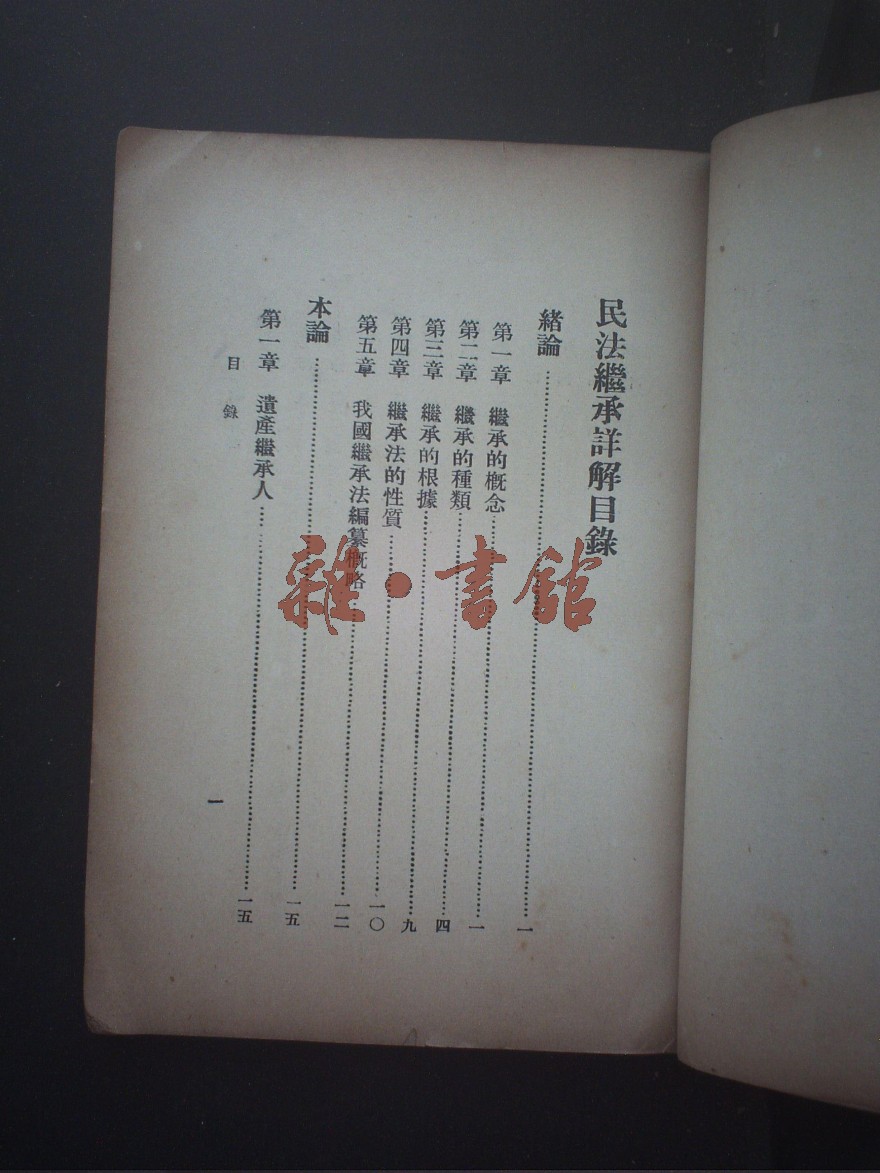 民法繼承詳解目錄
緒論……一
第一章 繼承的概念……一
第二章 繼承的種類……四
第三章 繼承的根據……九
第四章 繼承法的性質……一〇
第五章 我國繼承法編纂概略……一二
本論……一五
第一章 遺產繼承人……一五
目錄
一
雜·書舘